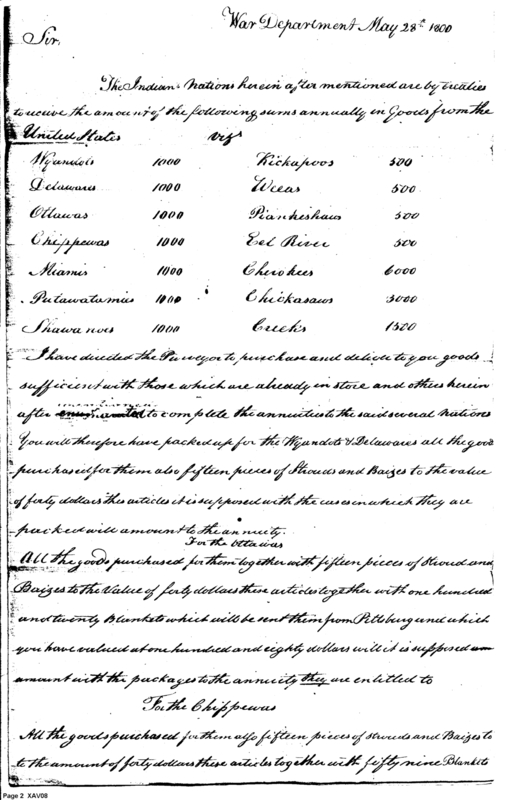 War Department May 28th 1800
Sir,
The Indian Nations herein after mentioned are by treaties
to receive the amount of the following sums annually in Goods from the
United States vizt
Wyandots 1000 Kickapoos 500
Delawares 1000 Weeas 500
Ottawas 1000 Piankeshaws 500
Chippewas 1000 Eel River 500
Miamis 1000 Cherokees 6000
Putawatamies 1000 Chickasaws 3000
Shawanoes 1000 Creeks 1500
I have directed the Purveyor to purchase and deliver to you goods
sufficient with those which are already in store and others herein
after mentioned to complete the annuities to the said several Nations
You will therefore have packed up for the Wyandots & Delawares all the good
purchased for them also fifteen pieces of Strouds and Baizes to the value
of forty dollars this articles it is supposed with the cases in which they are
packed will amount to the annuity.
For the Ottawas
All the goods purchased for them together with fifteen pieces of Stroud and
Baizes to the Value of forty dollars these articles together with one hundred
and twenty Blankets which will be sent them from Pittburg and which
you have valued at one hundred and eighty dollars will it is supposed
amount with the packages to the annuity they are entitled to
For the Chippewas
All the goods purchased for them also fifteen pieces of strouds and Baizes to
to the amount of forty dollars these articles together with fifty nine Blankets
Page 2 XAV08